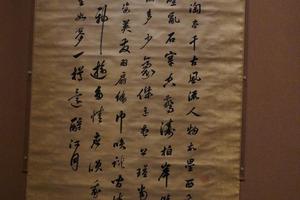 淘盡千古風流人物故壘西
亂石穿空驚濤拍岸
多少豪傑公瑾當
姿英發羽扇綸巾談
神遊多情應笑我
生如夢一樽還酹江月